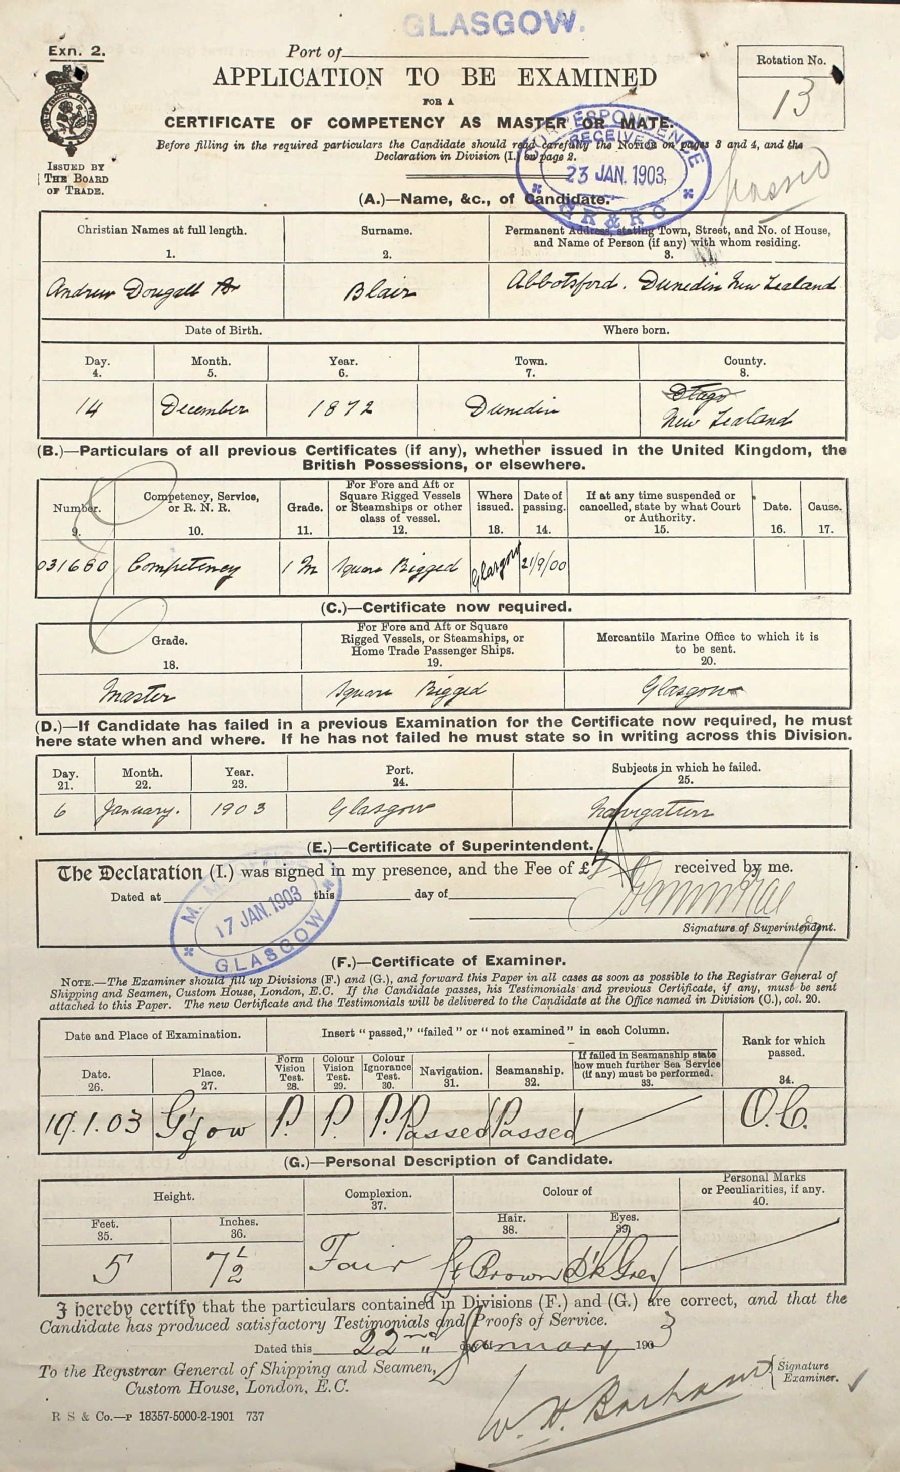 GLASGOW.
Exn. 2.
Port of
Rotation No.
13
APPLICATION TO BE EXAMINED
FOR A
CERTIFICATE OF COMPETENCY AS MASTER OR MATE.
Before filling in the required particulars the Candidate should read carefully the Notice on pages 3 and 4, and the
Declaration in Division (I.) on page 2.
ISSUED BY
THE BOARD
OF TRADE.
CORRESPONDENCE
RECEIVED
23 JAN. 1903
G R & R O
passed
(A.)—Name, &c., of Candidate.
Christian Names at full length.
1.
Surname.
2.
Permanent Address, stating Town, Street, and No. of House,
and Name of Person (if any) with whom residing.
3.
Andrew Dougall
Blair
Abbotsford. Dunedin New Zealand
Date of Birth.
Where born.
Day.
4.
Month.
5.
Year.
6.
Town.
7.
County.
8.
14
December
1872
Dunedin
Otago
New Zealand
(B.)—Particulars of all previous Certificates (if any), whether issued in the United Kingdom, the
British Possessions, or elsewhere.
Number.
9.
Competency, Service,
or R. N. R.
10.
Grade.
11.
For Fore and Aft or
Square Rigged Vessels
or Steamships or other
class of vessel.
12.
Where
issued.
13.
Date of
passing.
14.
If at any time suspended or
cancelled, state by what Court
or Authority.
15.
Date.
16.
Cause.
17.
031680
Competency
1 M
Square Rigged
Glasgow
21/9/00
(C.)—Certificate now required.
Grade.
18.
For Fore and Aft or Square
Rigged Vessels, or Steamships, or
Home Trade Passenger Ships.
19.
Mercantile Marine Office to which it is
to be sent.
20.
Master
Square Rigged
Glasgow
(D.)—If Candidate has failed in a previous Examination for the Certificate now required, he must
here state when and where. If he has not failed he must state so in writing across this Division.
Day.
21.
Month.
22.
Year.
23.
Port.
24.
Subjects in which he failed.
25.
6
January.
1903
Glasgow
Navigation
(E.)—Certificate of Superintendent.
The Declaration (I.) was signed in my presence, and the Fee of £ received by me.
Dated at this day of
M. M.
17 JAN. 1903
GLASGOW
Signature of Superintendent.
(F.)—Certificate of Examiner.
NOTE.—The Examiner should fill up Divisions (F.) and (G.), and forward this Paper in all cases as soon as possible to the Registrar General of
Shipping and Seamen, Custom House, London, E.C. If the Candidate passes, his Testimonials and previous Certificate, if any, must be sent
attached to this Paper. The new Certificate and the Testimonials will be delivered to the Candidate at the Office named in Division (C.), col. 20.
Date and Place of Examination.
Insert "passed," "failed" or "not examined" in each Column.
Rank for which
passed.
34.
Date.
26.
Place.
27.
Form
Vision
Test.
28.
Colour
Vision
Test.
29.
Colour
Ignorance
Test.
30.
Navigation.
31.
Seamanship.
32.
If failed in Seamanship state
how much further Sea Service
(if any) must be performed.
33.
19.1.03
G'gow
P.
P.
P.
Passed
Passed
O.C.
(G.)—Personal Description of Candidate.
Height.
Complexion.
37.
Colour of
Personal Marks
or Peculiarities, if any.
40.
Feet.
35.
Inches.
36.
Hair.
38.
Eyes.
39.
5
7½
Fair
Lt Brown
D'k Grey
I hereby certify that the particulars contained in Divisions (F.) and (G.) are correct, and that the
Candidate has produced satisfactory Testimonials and Proofs of Service.
Dated this 22nd day of January 1903
To the Registrar General of Shipping and Seamen,
Custom House, London, E.C.
Signature
Examiner.
W. H. Barham
R S & Co.—P 18357-5000-2-1901 737